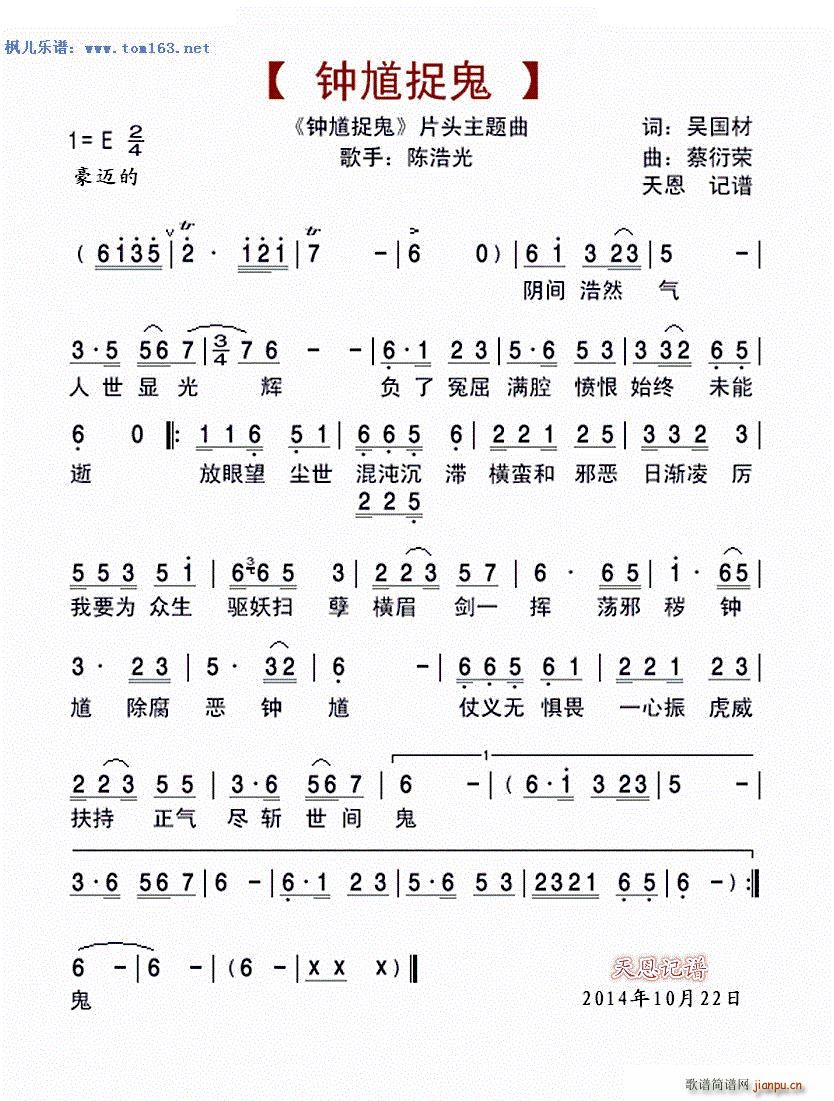 枫儿乐谱：www.tom163.net
【 钟馗捉鬼 】
《钟馗捉鬼》片头主题曲
词：吴国材
1= E 2/4
歌手：陈浩光
曲：蔡衍荣
豪迈的
天恩 记谱
( 6 1 3 5 | 2 · 1 2 1 | 7 - | 6 0 ) | 6 1 3 2 3 | 5 - |
阴间 浩然 气
3 · 5 5 6 7 | 3/4 7 6 - - | 6 · 1 2 3 | 5 · 6 5 3 | 3 3 2 6 5 |
人 世 显 光 辉 负 了 冤屈 满腔 愤恨 始终 未能
6 0 ‖: 1 1 6 5 1 | 6 6 5 6 | 2 2 1 2 5 | 3 3 2 3 |
逝 放眼望 尘世 混沌沉 滞 横蛮和 邪恶 日渐凌 厉
2 2 5
5 5 3 5 1 | 6 3 6 6 5 3 | 2 2 3 5 7 | 6 · 6 5 | 1 · 6 5 |
我要为 众生 驱妖扫 孽 横眉 剑一 挥 荡邪 秽 钟
3 · 2 3 | 5 · 3 2 | 6 - | 6 6 5 6 1 | 2 2 1 2 3 |
馗 除腐 恶 钟 馗 仗义无 惧畏 一心振 虎威
1
2 2 3 5 5 | 3 · 6 5 6 7 | 6 - | ( 6 · 1 3 2 3 | 5 - |
扶持 正气 尽 斩 世 间 鬼
3 · 5 5 6 7 | 6 - | 6 · 1 2 3 | 5 · 6 5 3 | 2 3 2 1 6 5 | 6 - ) :‖
6 - | 6 - | ( 6 - | X X X ) ‖
鬼
天恩记谱
2014年10月22日
歌谱简谱网 jianpu.cn